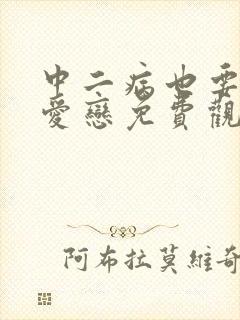 中二病也要
愛戀免費觀
阿布拉莫維奇